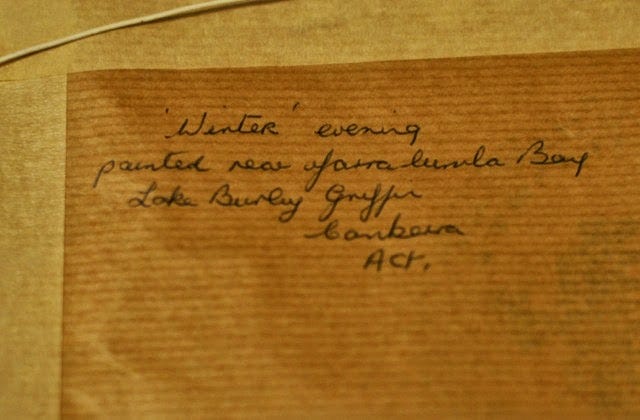 'Winter' evening
painted near Yarralumla Bay
Lake Burley Griffin
Canberra
ACT.